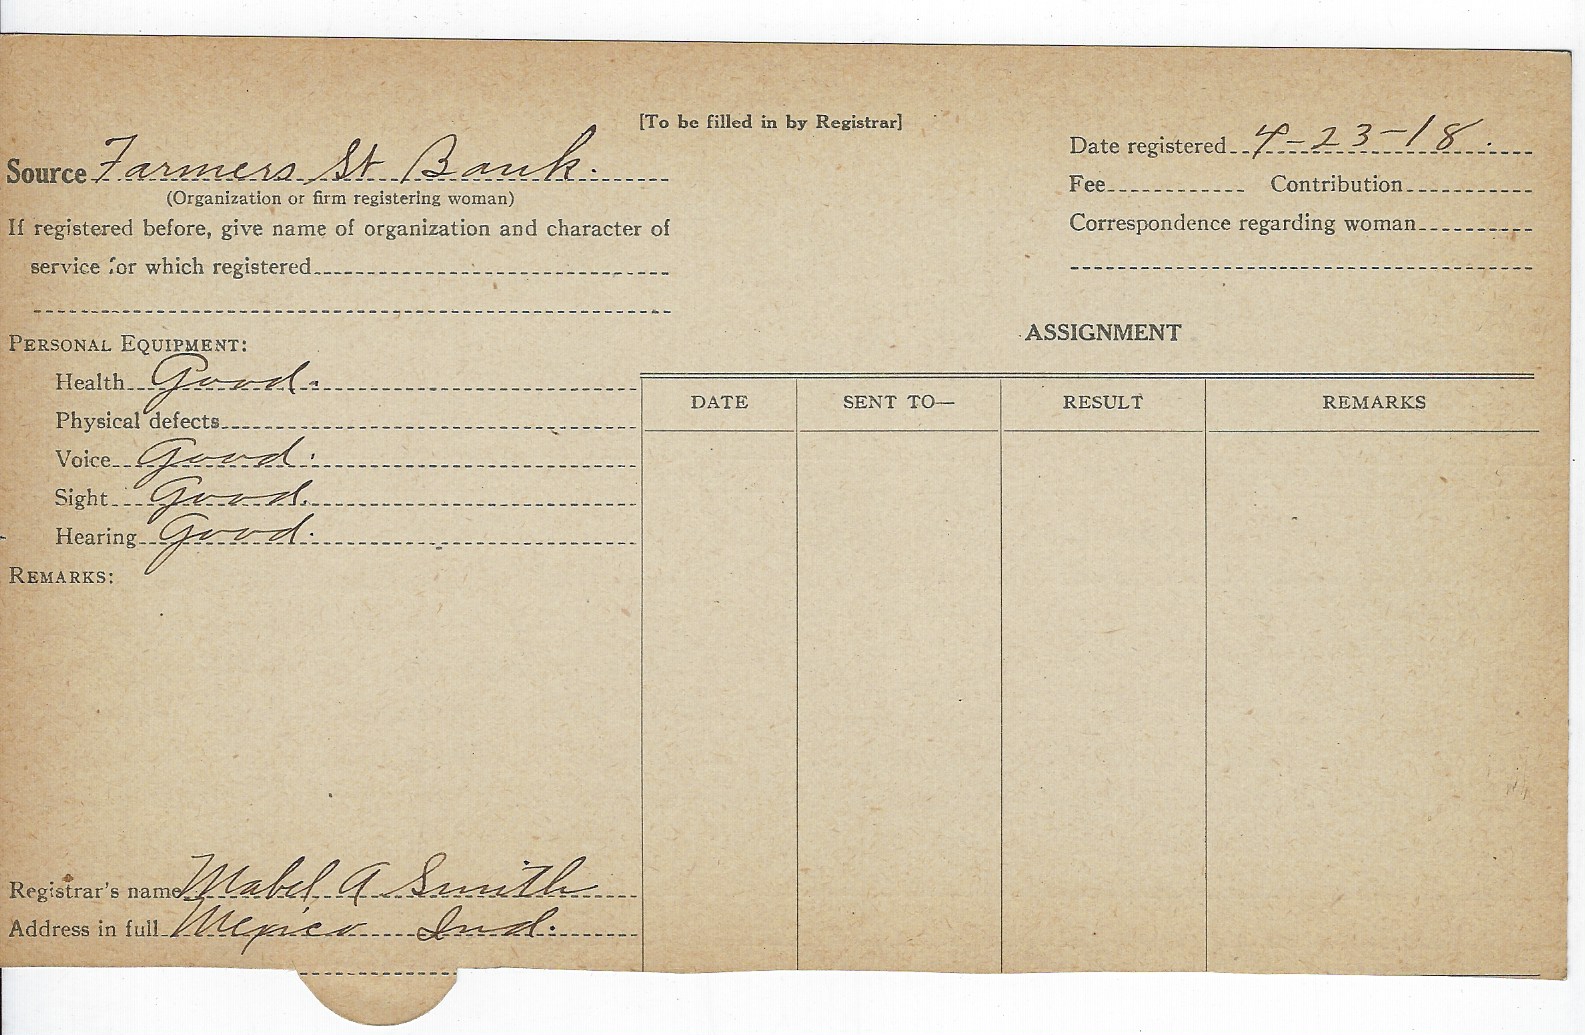 [To be filled in by Registrar]
Source Farmers St Bank.
(Organization or firm registering woman)
If registered before, give name of organization and character of
service for which registered
Date registered 4-23-18.
Fee Contribution
Correspondence regarding woman
PERSONAL EQUIPMENT:
Health Good.
Physical defects
Voice Good.
Sight Good.
Hearing Good.
REMARKS:
ASSIGNMENT
DATE SENT TO— RESULT REMARKS
Registrar's name Mabel A Smith
Address in full Mexico Ind.